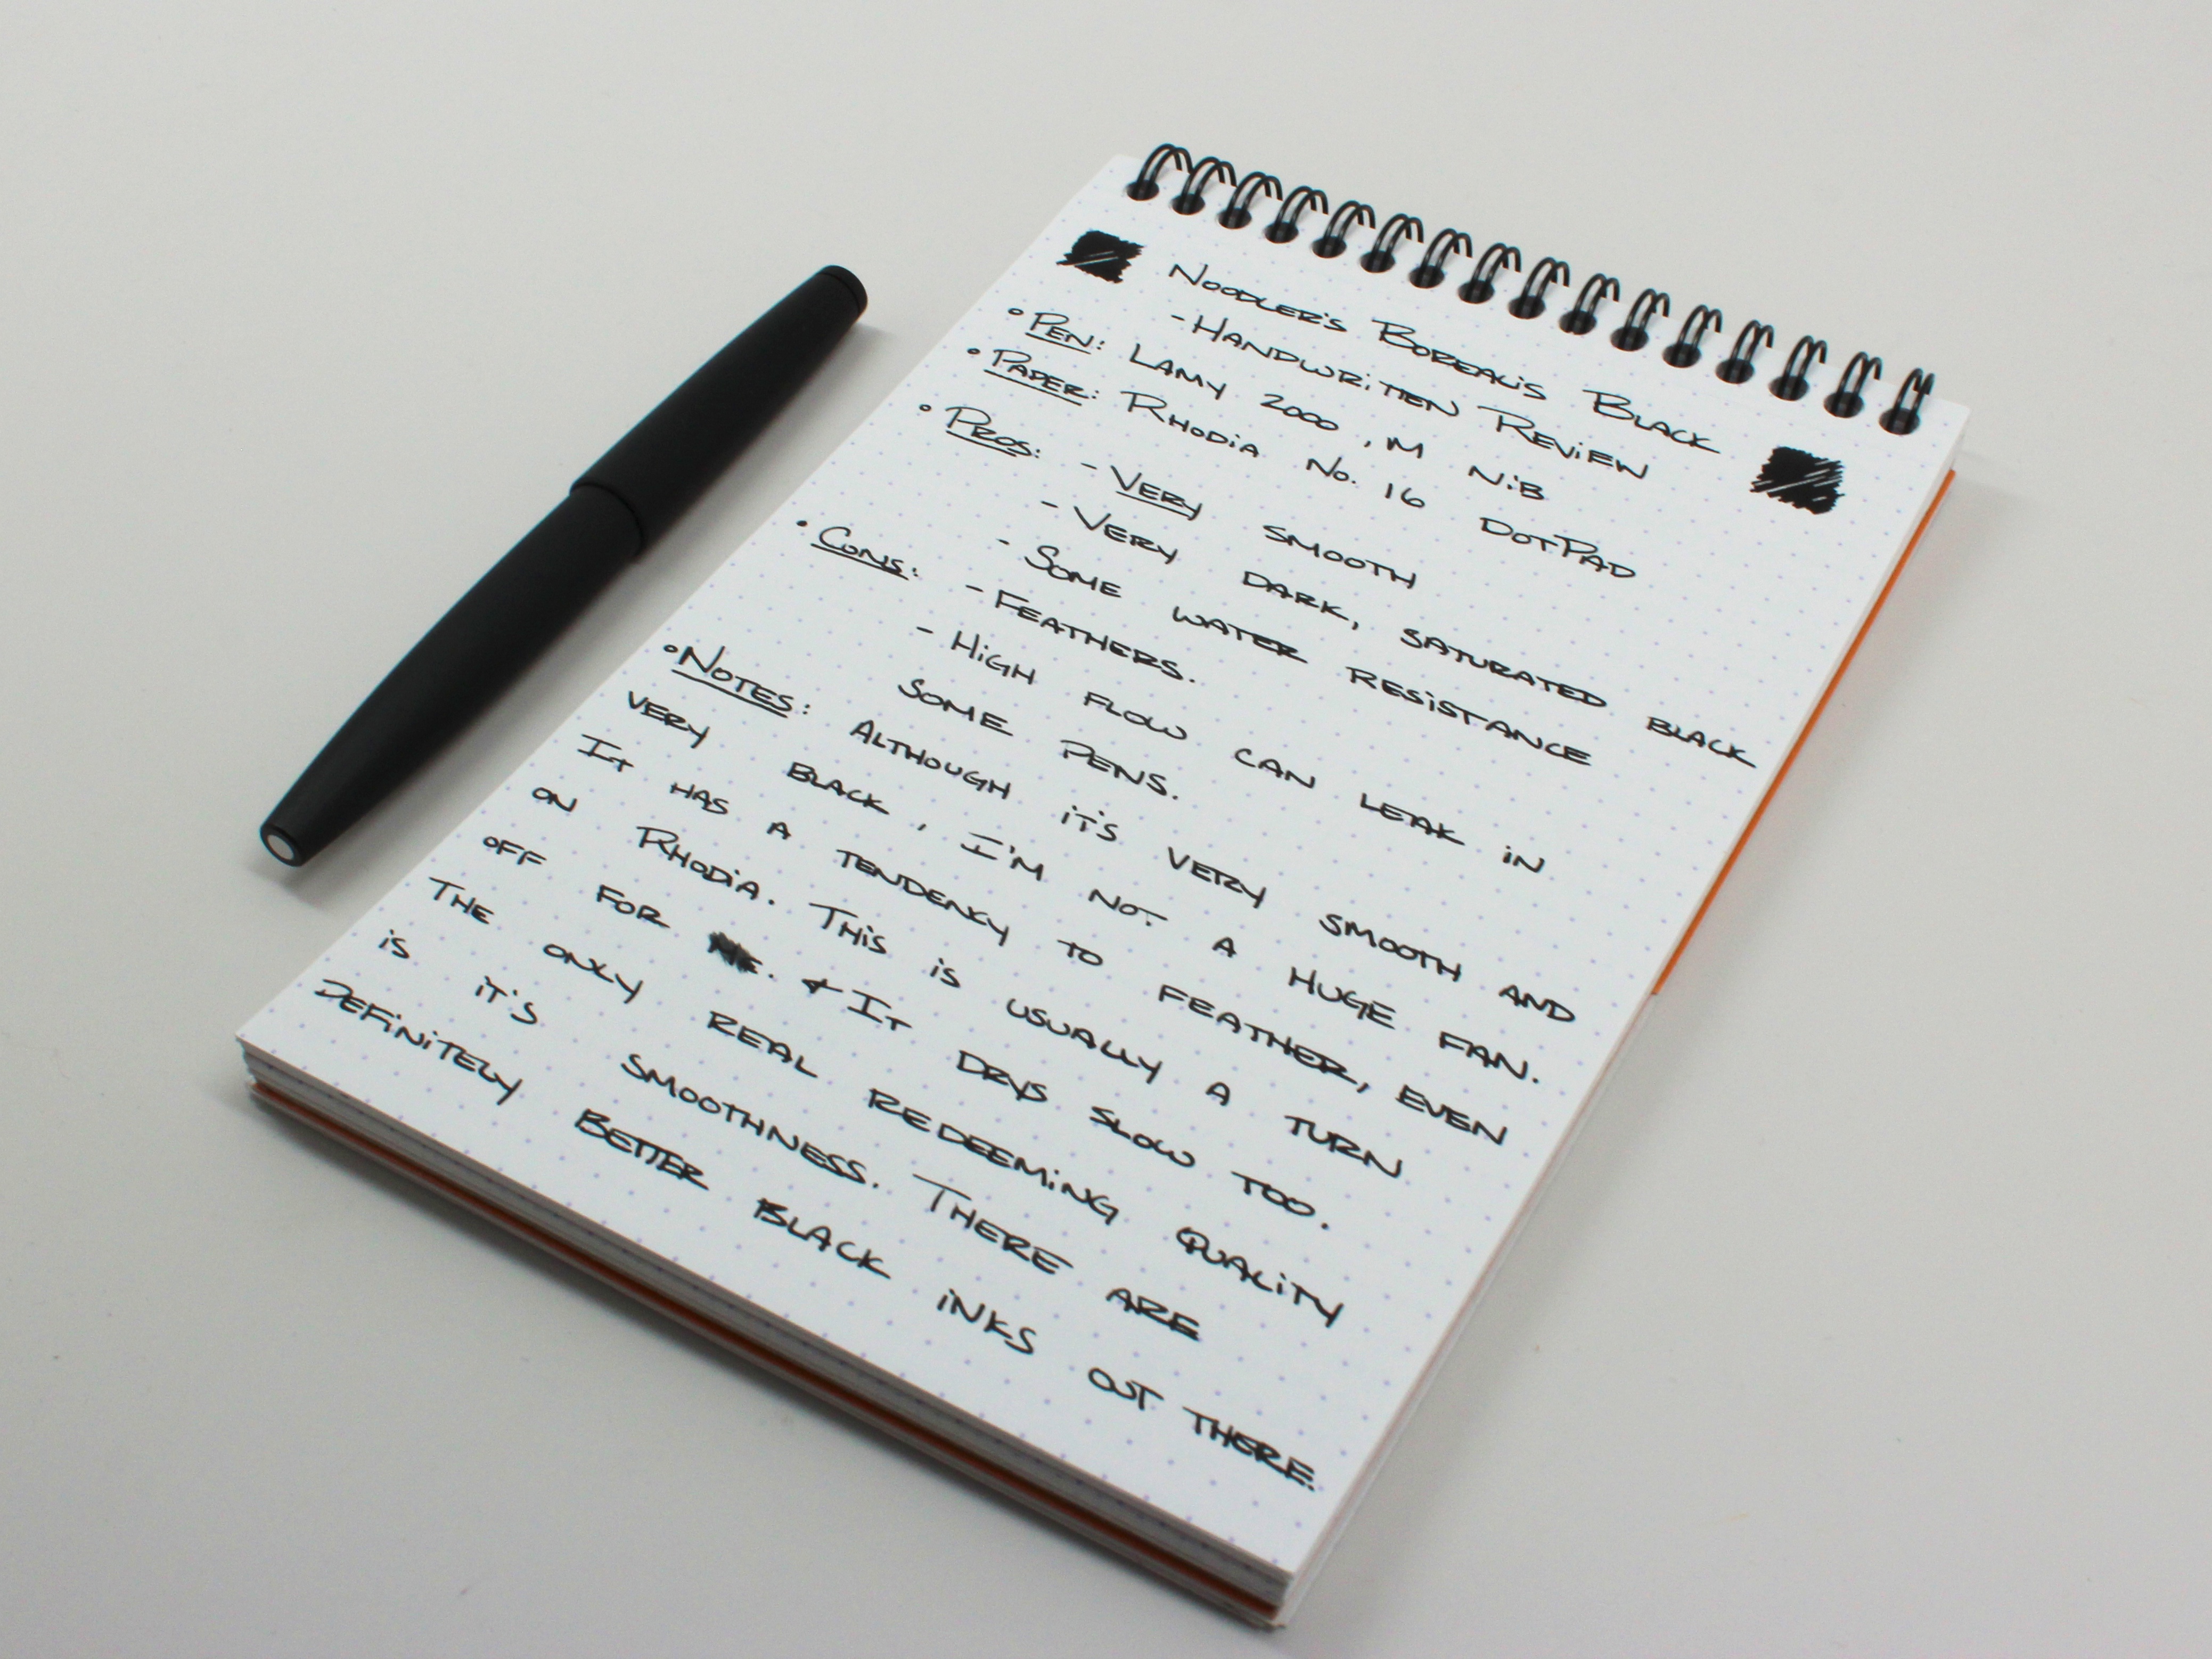 Noodler's Borealis Black
- Handwritten Review
• Pen: Lamy 2000, M Nib
• Paper: Rhodia No. 16 DotPad
• Pros: - Very smooth
- Very dark, saturated black
- Some water resistance
• Cons: - Feathers.
- High flow can leak in
some pens.
• Notes: Although it's very smooth and
very black, I'm not a huge fan.
It has a tendency to feather, even
on Rhodia. This is usually a turn
off for me. & It drys slow too.
The only real redeeming quality
is it's smoothness. There are
definitely better black inks out there.